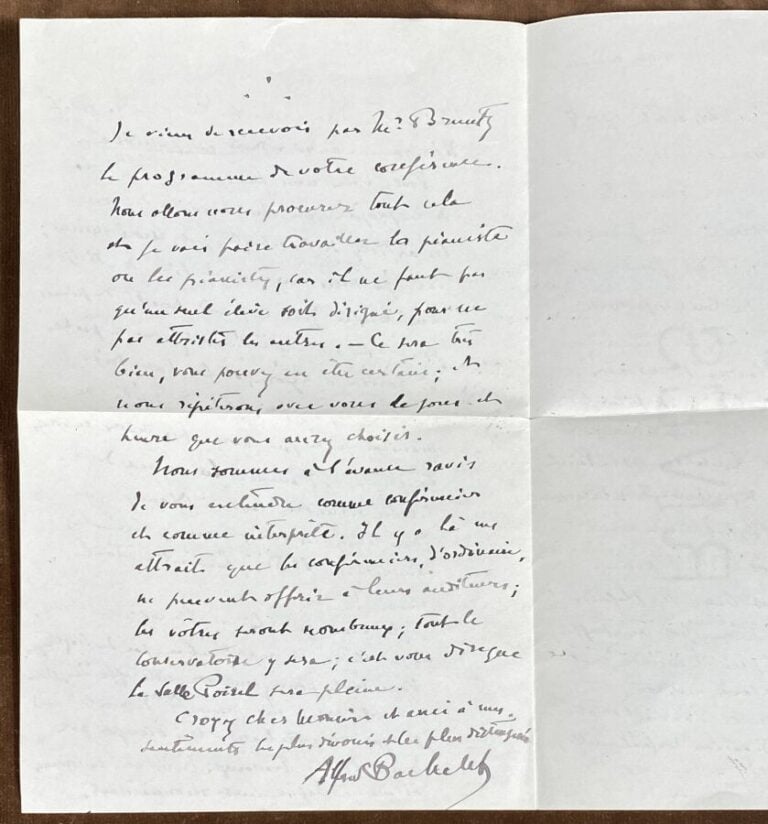 Je viens de recevoir par Mr. Bruntz
le programme de votre conférence.
Nous allons nous procurer tout cela
et je vais faire travailler les pianiste
ou les pianistes, car il ne faut pas
qu'un seul élève soit désigné, pour ne
pas attrister les autres. — Ce sera très
bien, vous pouvez en être certain; et
nous répéterons avec vous le jour et
heure que vous aurez choisis.
Nous sommes à l'avance ravis
de vous entendre comme conférencier
et comme interprète. Il y a là un
attrait que les conférenciers, d'ordinaire,
ne peuvent offrir à leurs auditeurs;
les vôtres seront nombreux; tout le
Conservatoire y sera; c'est vous dire que
la Salle Poirel sera pleine.
Croyez cher Monsieur et ami à mes
sentiments les plus dévoués et les plus distingués
Alfred Bachelet